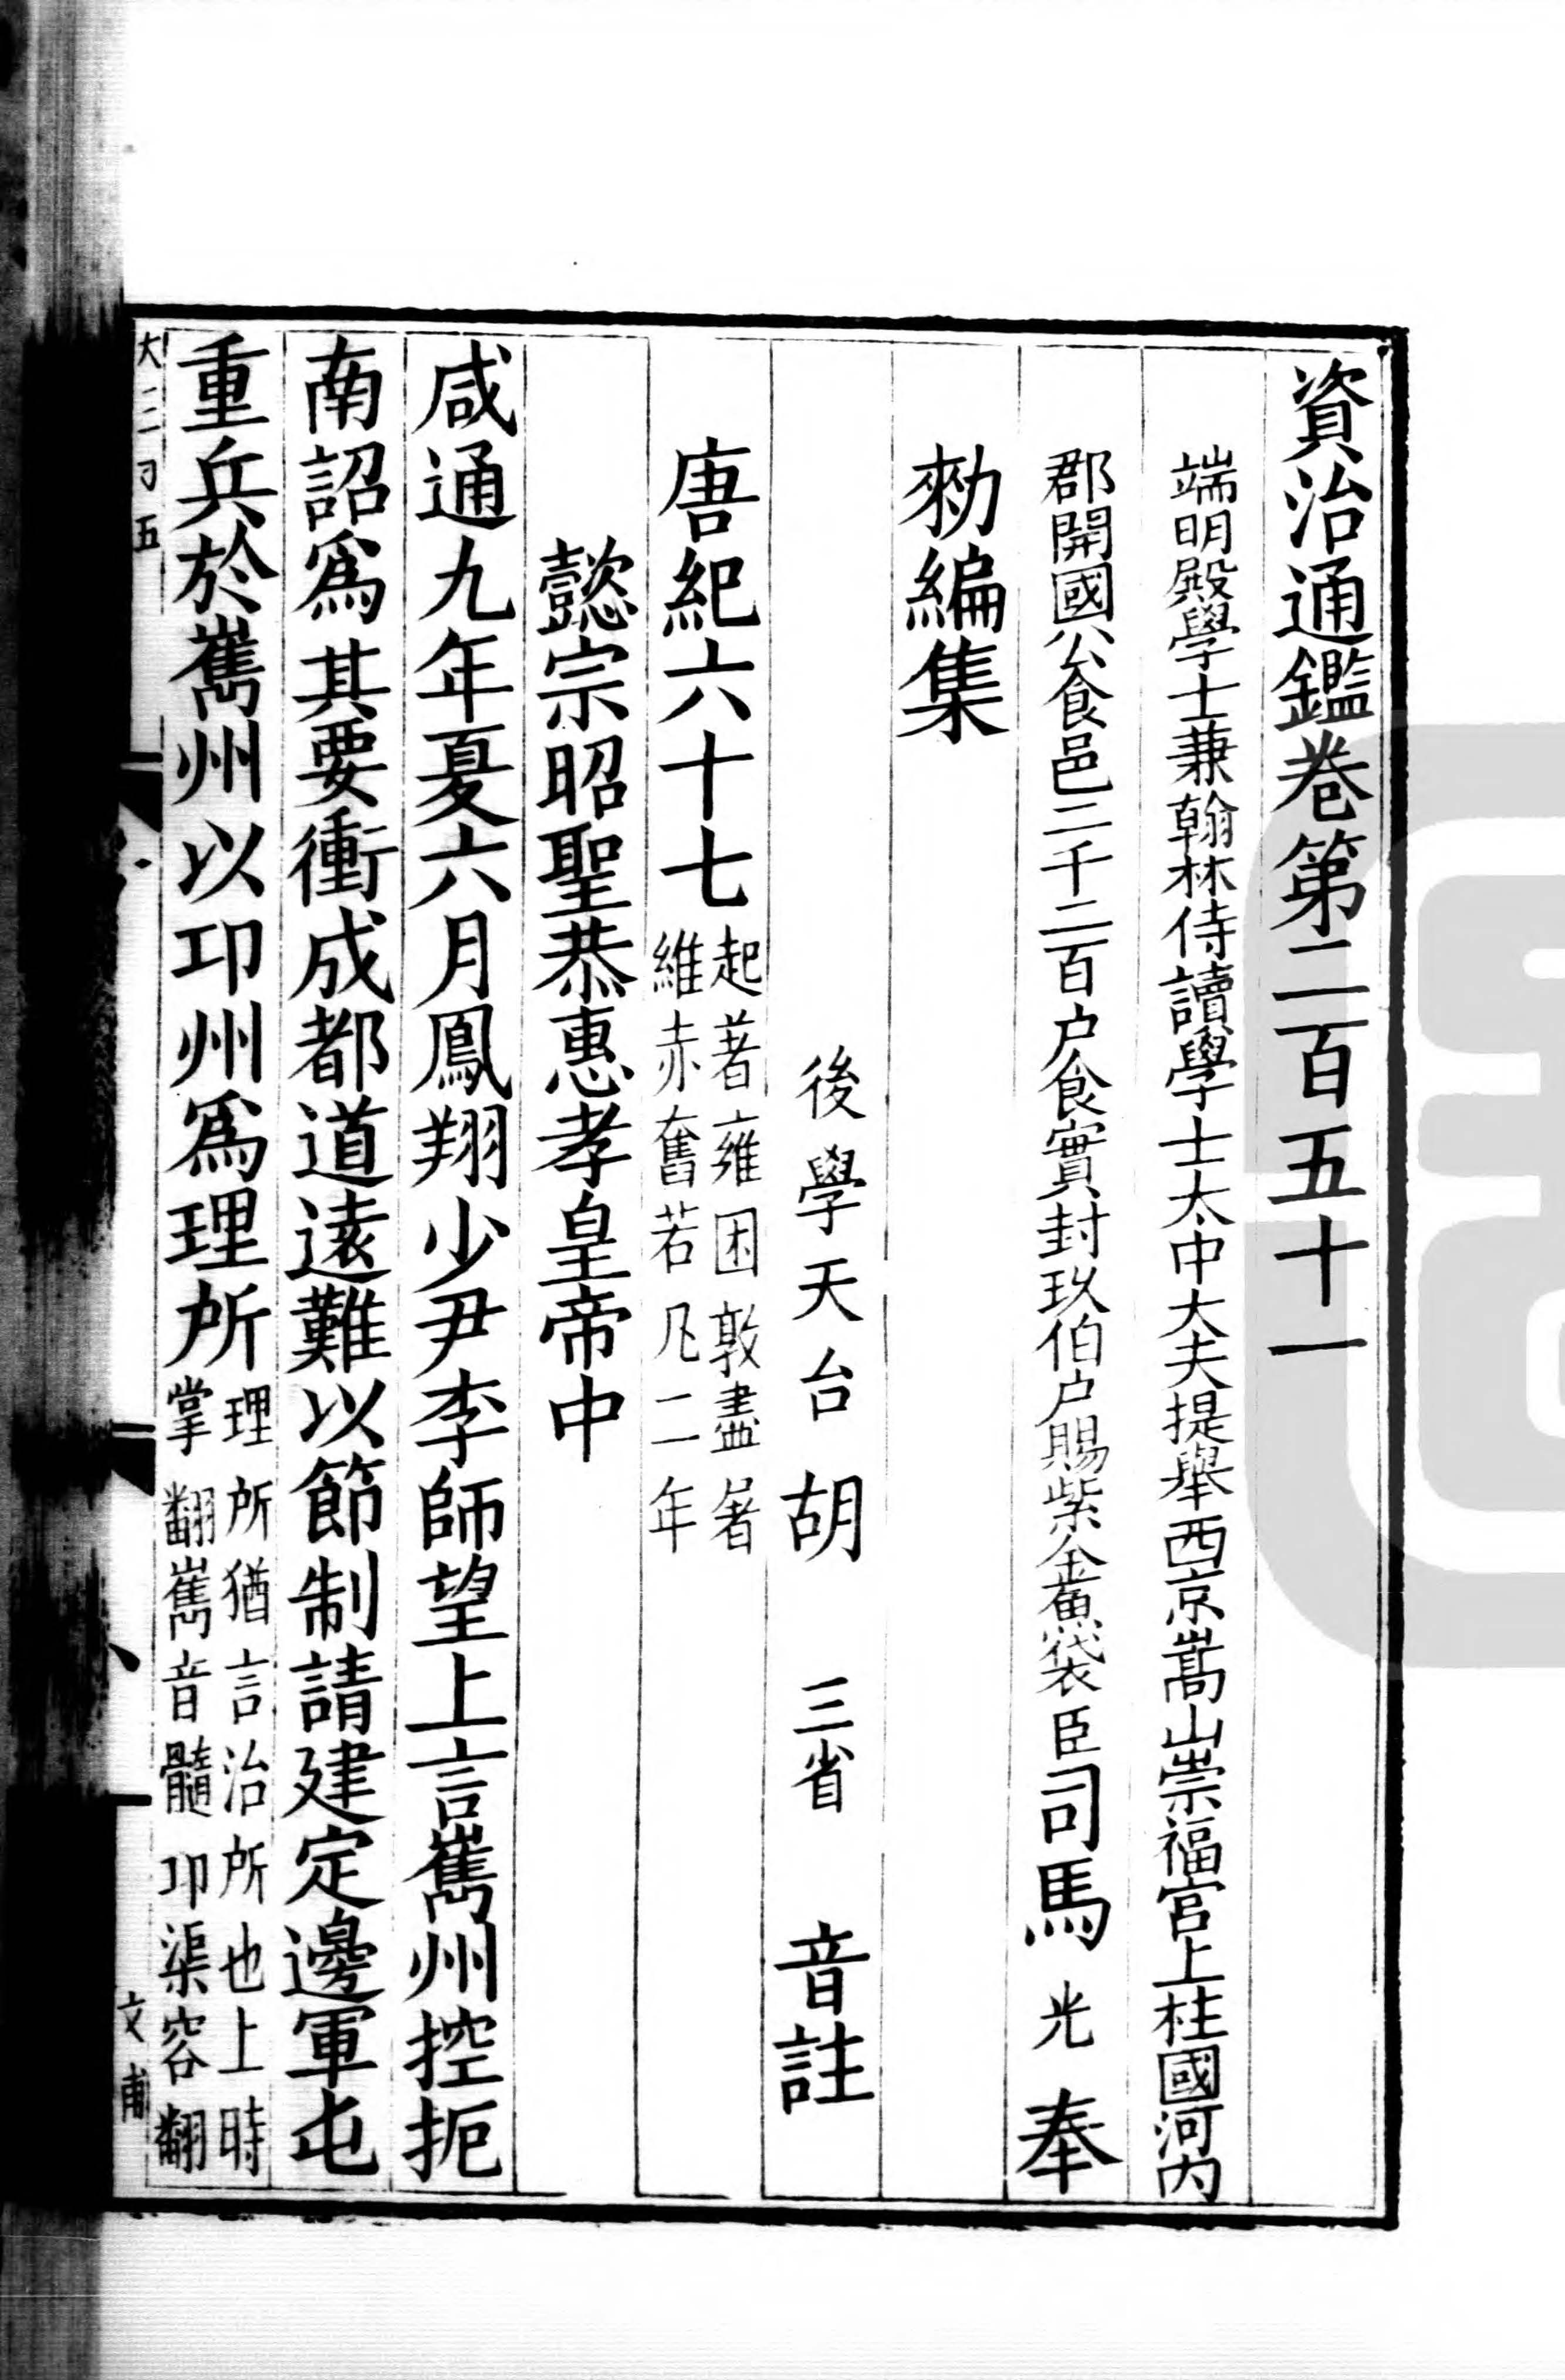 資治通鑑卷第二百五十一
端明殿學士兼翰林侍讀學士太中大夫提舉西京嵩山崇福宮上柱國河內
郡開國公食邑二千二百户食實封玖伯户賜紫金魚袋臣司馬光奉
勑編集
後學天台胡三省音註
唐紀六十七
起著雍困敦盡屠
維赤奮若凡二年
懿宗昭聖恭惠孝皇帝中
咸通九年夏六月鳳翔少尹李師望上言嶲州控扼
南詔爲其要衝成都道遠難以節制請建定邊軍屯
重兵於嶲州以邛州爲理所
理所猶言治所也上時
掌翻嶲音髓邛渠容翻
文甫